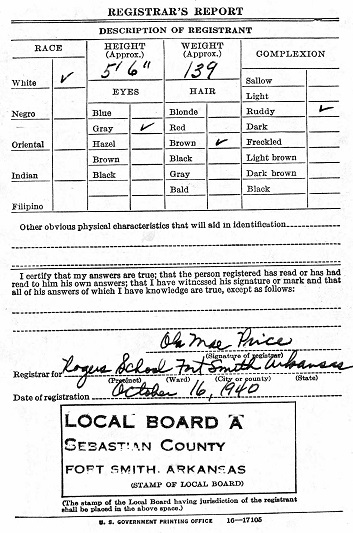 REGISTRAR'S REPORT
DESCRIPTION OF REGISTRANT
RACE
HEIGHT (Approx.)
WEIGHT (Approx.)
COMPLEXION
5' 6"
139
White ✓
Sallow
Light
EYES
HAIR
Negro
Blue
Blonde
Ruddy ✓
Gray ✓
Red
Dark
Oriental
Hazel
Brown ✓
Freckled
Brown
Black
Light brown
Indian
Black
Gray
Dark brown
Bald
Black
Filipino
Other obvious physical characteristics that will aid in identification
I certify that my answers are true; that the person registered has read or has had
read to him his own answers; that I have witnessed his signature or mark and that
all of his answers of which I have knowledge are true, except as follows:
Ola Mae Price
(Signature of registrar)
Registrar for Rogers School Fort Smith Arkansas
(Precinct) (Ward) (City or county) (State)
Date of registration October 16, 1940
LOCAL BOARD A
SEBASTIAN COUNTY
FORT SMITH, ARKANSAS
(STAMP OF LOCAL BOARD)
(The stamp of the Local Board having jurisdiction of the registrant
shall be placed in the above space.)
U. S. GOVERNMENT PRINTING OFFICE 16—17105